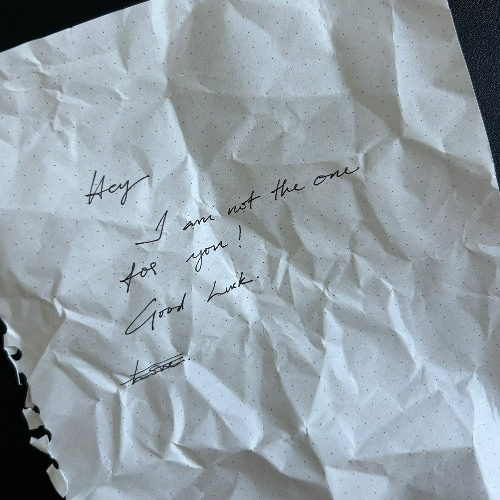 Hey
I am not the one
for you!
Good Luck.